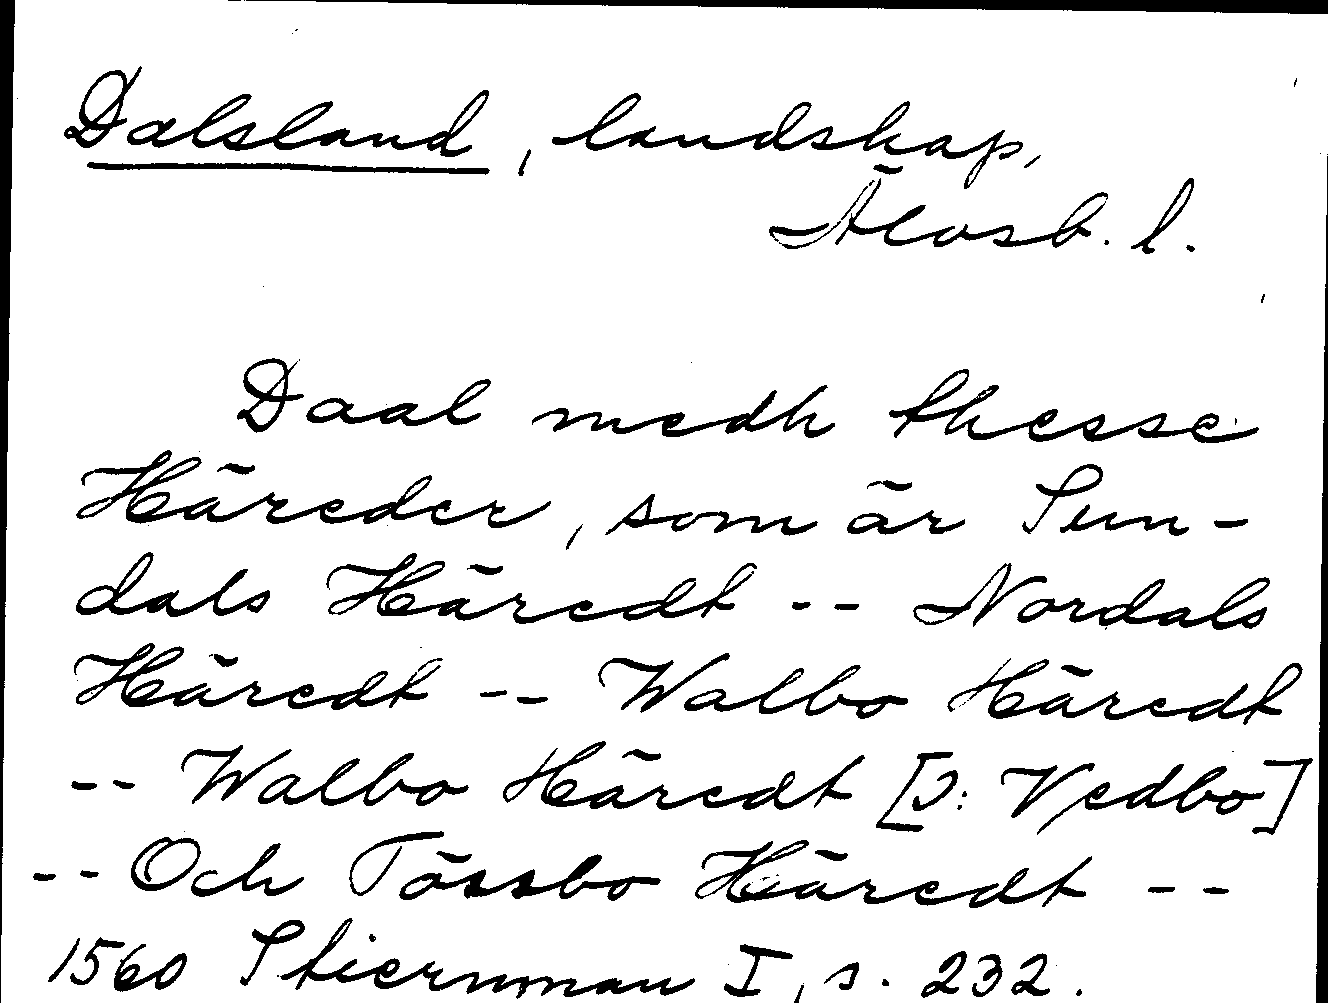 Dalsland, landskap,
Älvsb. l.
Daal medh thesse
Häreder, som är Sun-
dals Häredt -- Nordals
Häredt -- Walbo Häredt
-- Walbo Häredt [ɔ: Vedbo]
-- Och Tössbo Häredt --
1560 Stiernman I, s. 232.